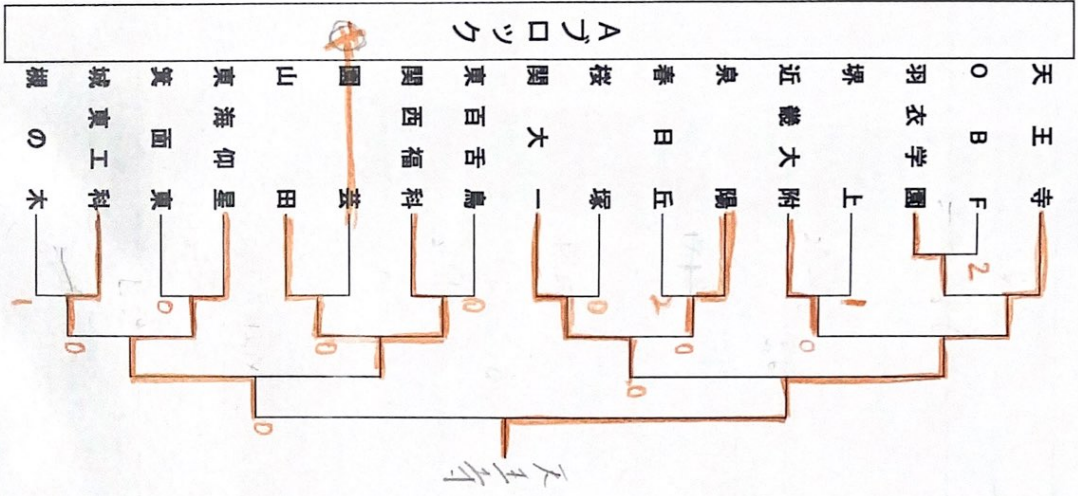 Aブロック
天王寺
OBF
羽衣学園
堺上
近畿大附
泉陽
春日丘
桜塚
関大一
東百舌鳥
関西福科
園芸
山田
東海仰星
箕面東
城東工科
槻の木
2
1
0
2
0
0
0
1
0
0
0
0
0
0
天王寺